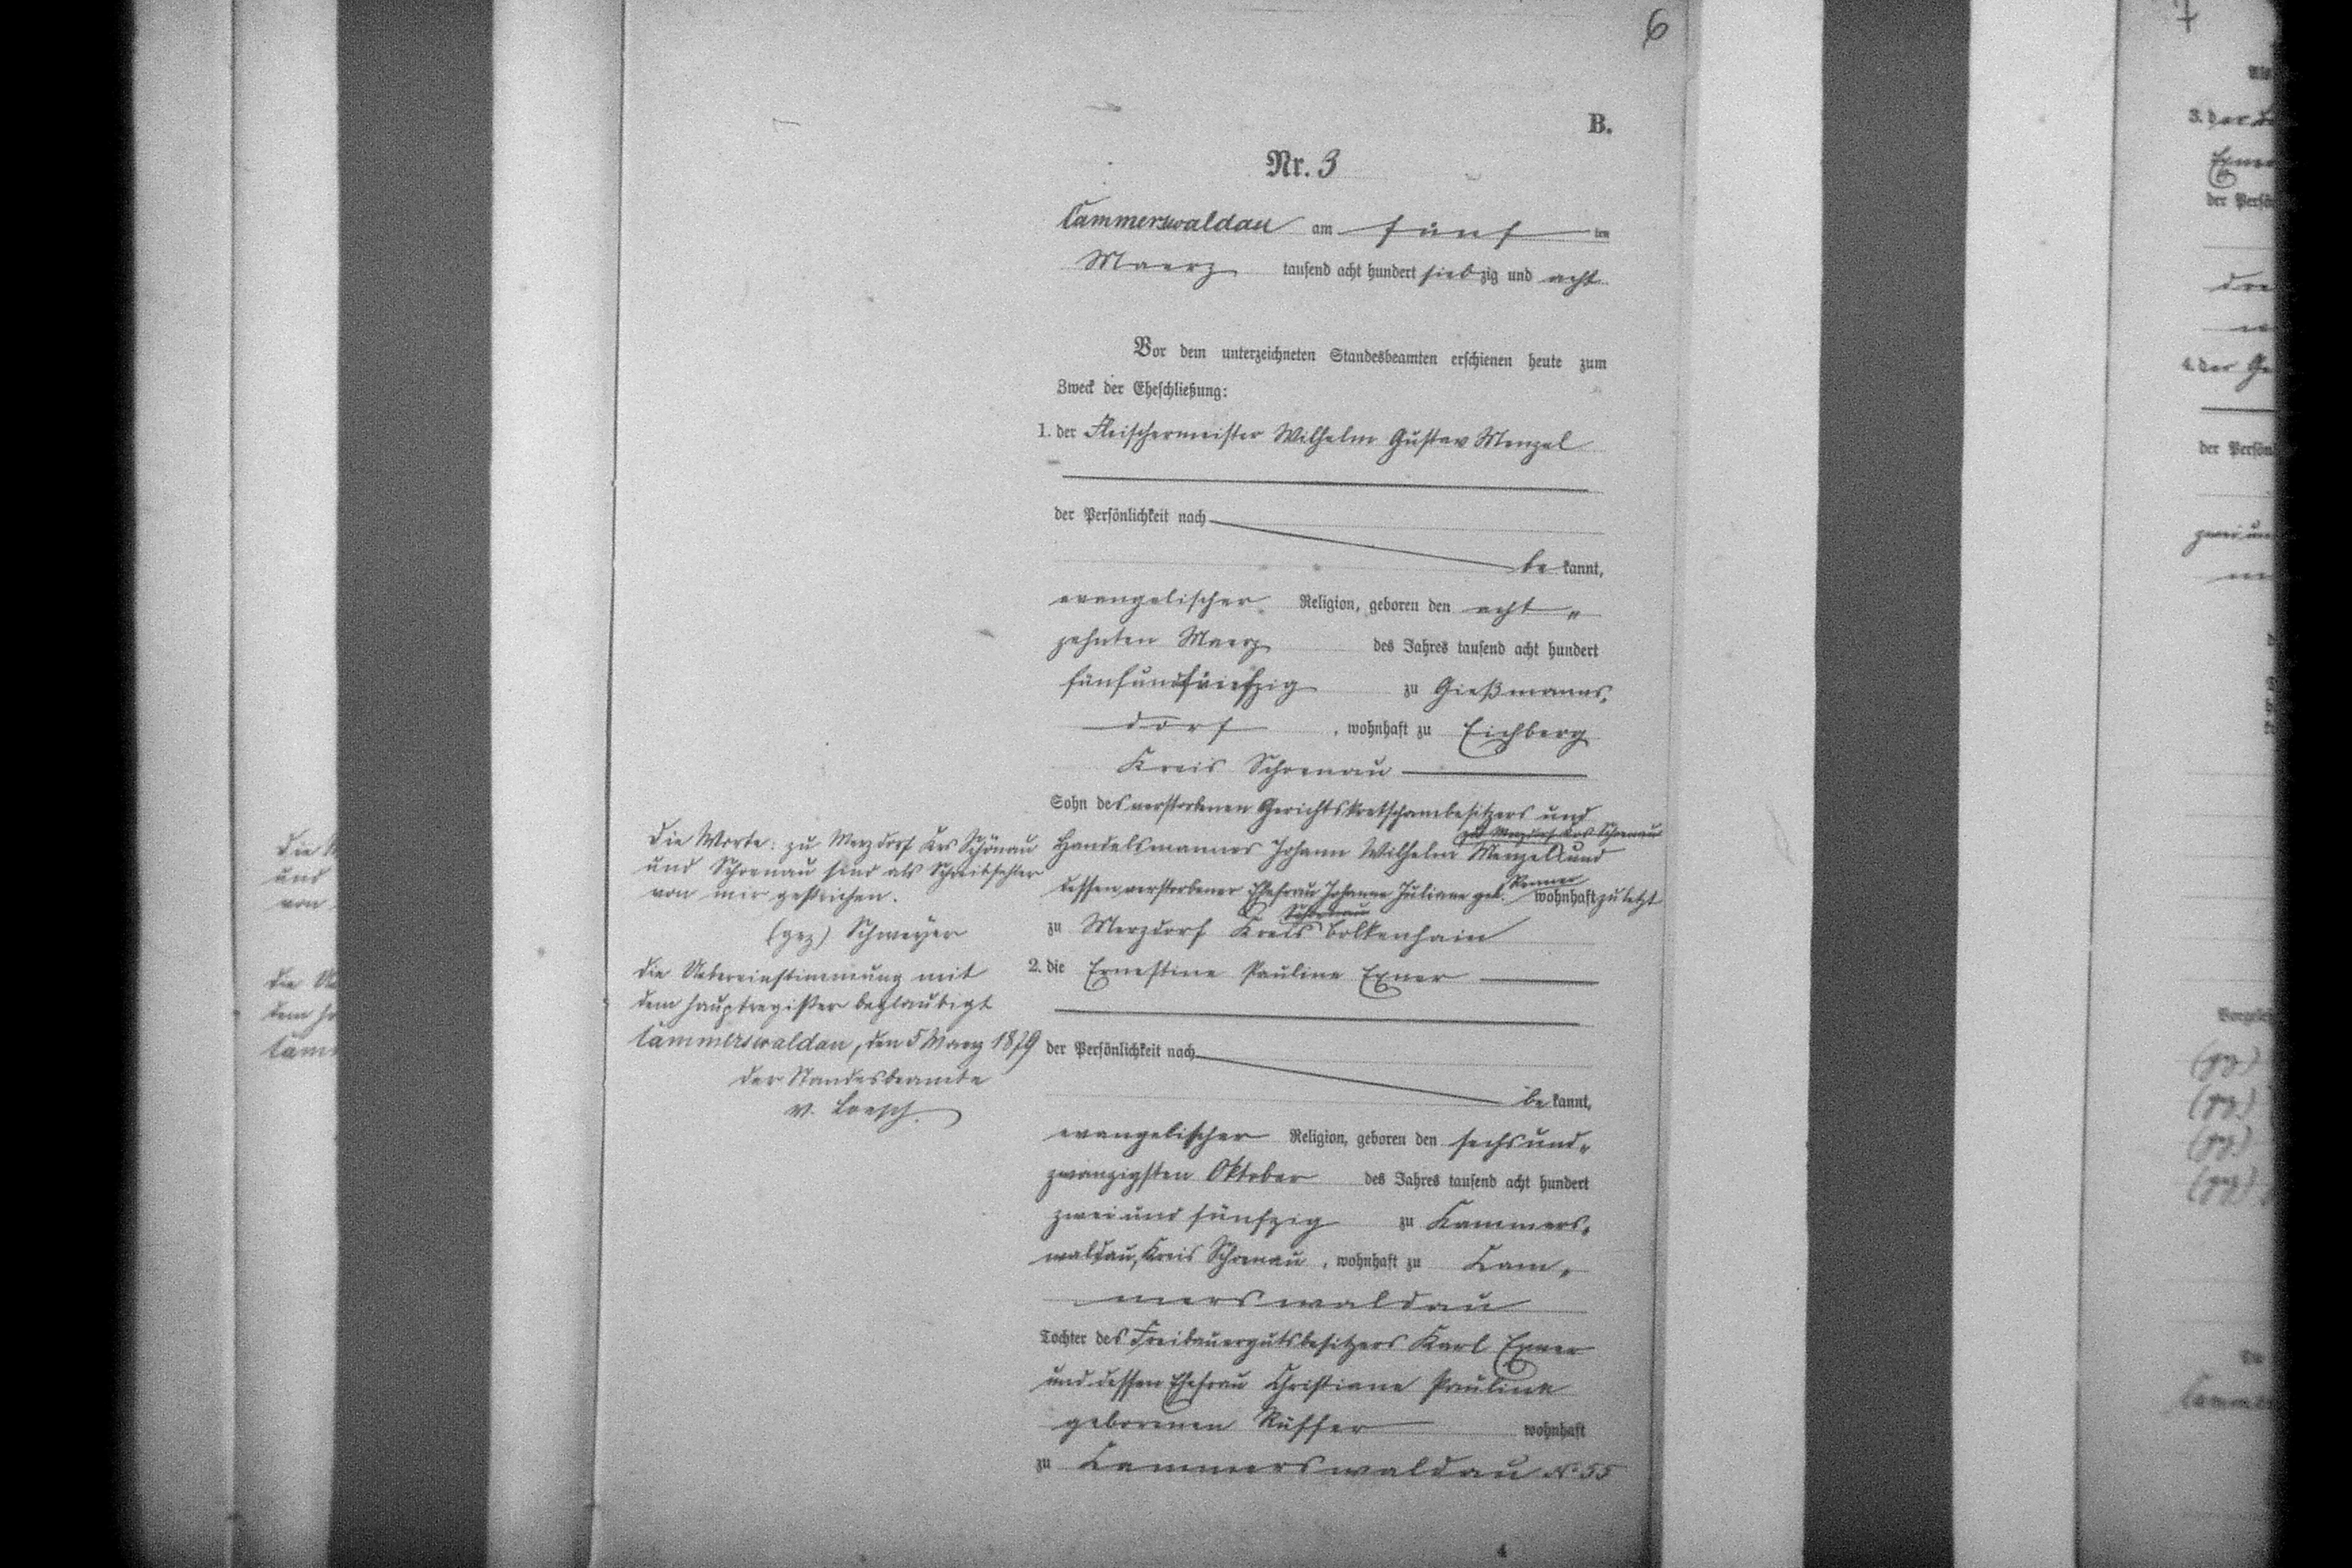 6
B.
Nr. 3
Cammerswaldau am fünf ten
Maerz tausend acht hundert siebzig und acht
Vor dem unterzeichneten Standesbeamten erschienen heute zum
Zweck der Eheschließung:
1. der Fleischermeister Wilhelm Gustav Menzel
der Persönlichkeit nach
be kannt,
evangelischer Religion, geboren den acht
zehnten Maerz des Jahres tausend acht hundert
fünfund zu Gießmanns-
dorf, wohnhaft zu Eichberg
Kreis Schoenau
Sohn des verstorbenen Gerichtskretschambesitzers und
zu Merzdorf Krs Schoenau
Handelsmannes Johann Wilhelm Menzel und
Renner
dessen verstorbener Ehefrau Johanne Juliane geb. wohnhaft zuletzt
Schoenau
zu Merzdorf Kreis Bolkenhain
2. die Ernestine Pauline Exner
der Persönlichkeit nach
be kannt,
evangelischer Religion, geboren den sechsund-
zwanzigsten Oktober des Jahres tausend acht hundert
zwei und fünfzig zu Kammers-
waldau, Kreis Schoenau, wohnhaft zu Cam-
merswaldau
Tochter des Freibauergutsbesitzers Karl Exner
und dessen Ehefrau Christiane Pauline
geborenen Rüffer wohnhaft
zu Cammerswaldau No 55
Die Worte: zu Merzdorf Krs Schönau
und Schoenau sind als Schreibfehler
von mir gestrichen.
(gez) Schweyer
Die Uebereinstimmung mit
dem Hauptregister beglaubigt
Cammerswaldau, den 5 Maerz 1879
Der Standesbeamte
v. Loesch
4
7
3. der
Exner
der Persön
dre
4. der Ge
der Persön
zwei un
Vorgeles
(gz)
(gz)
(gz)
(gz)
Die
und
von
Die Ue
dem Ha
Cam